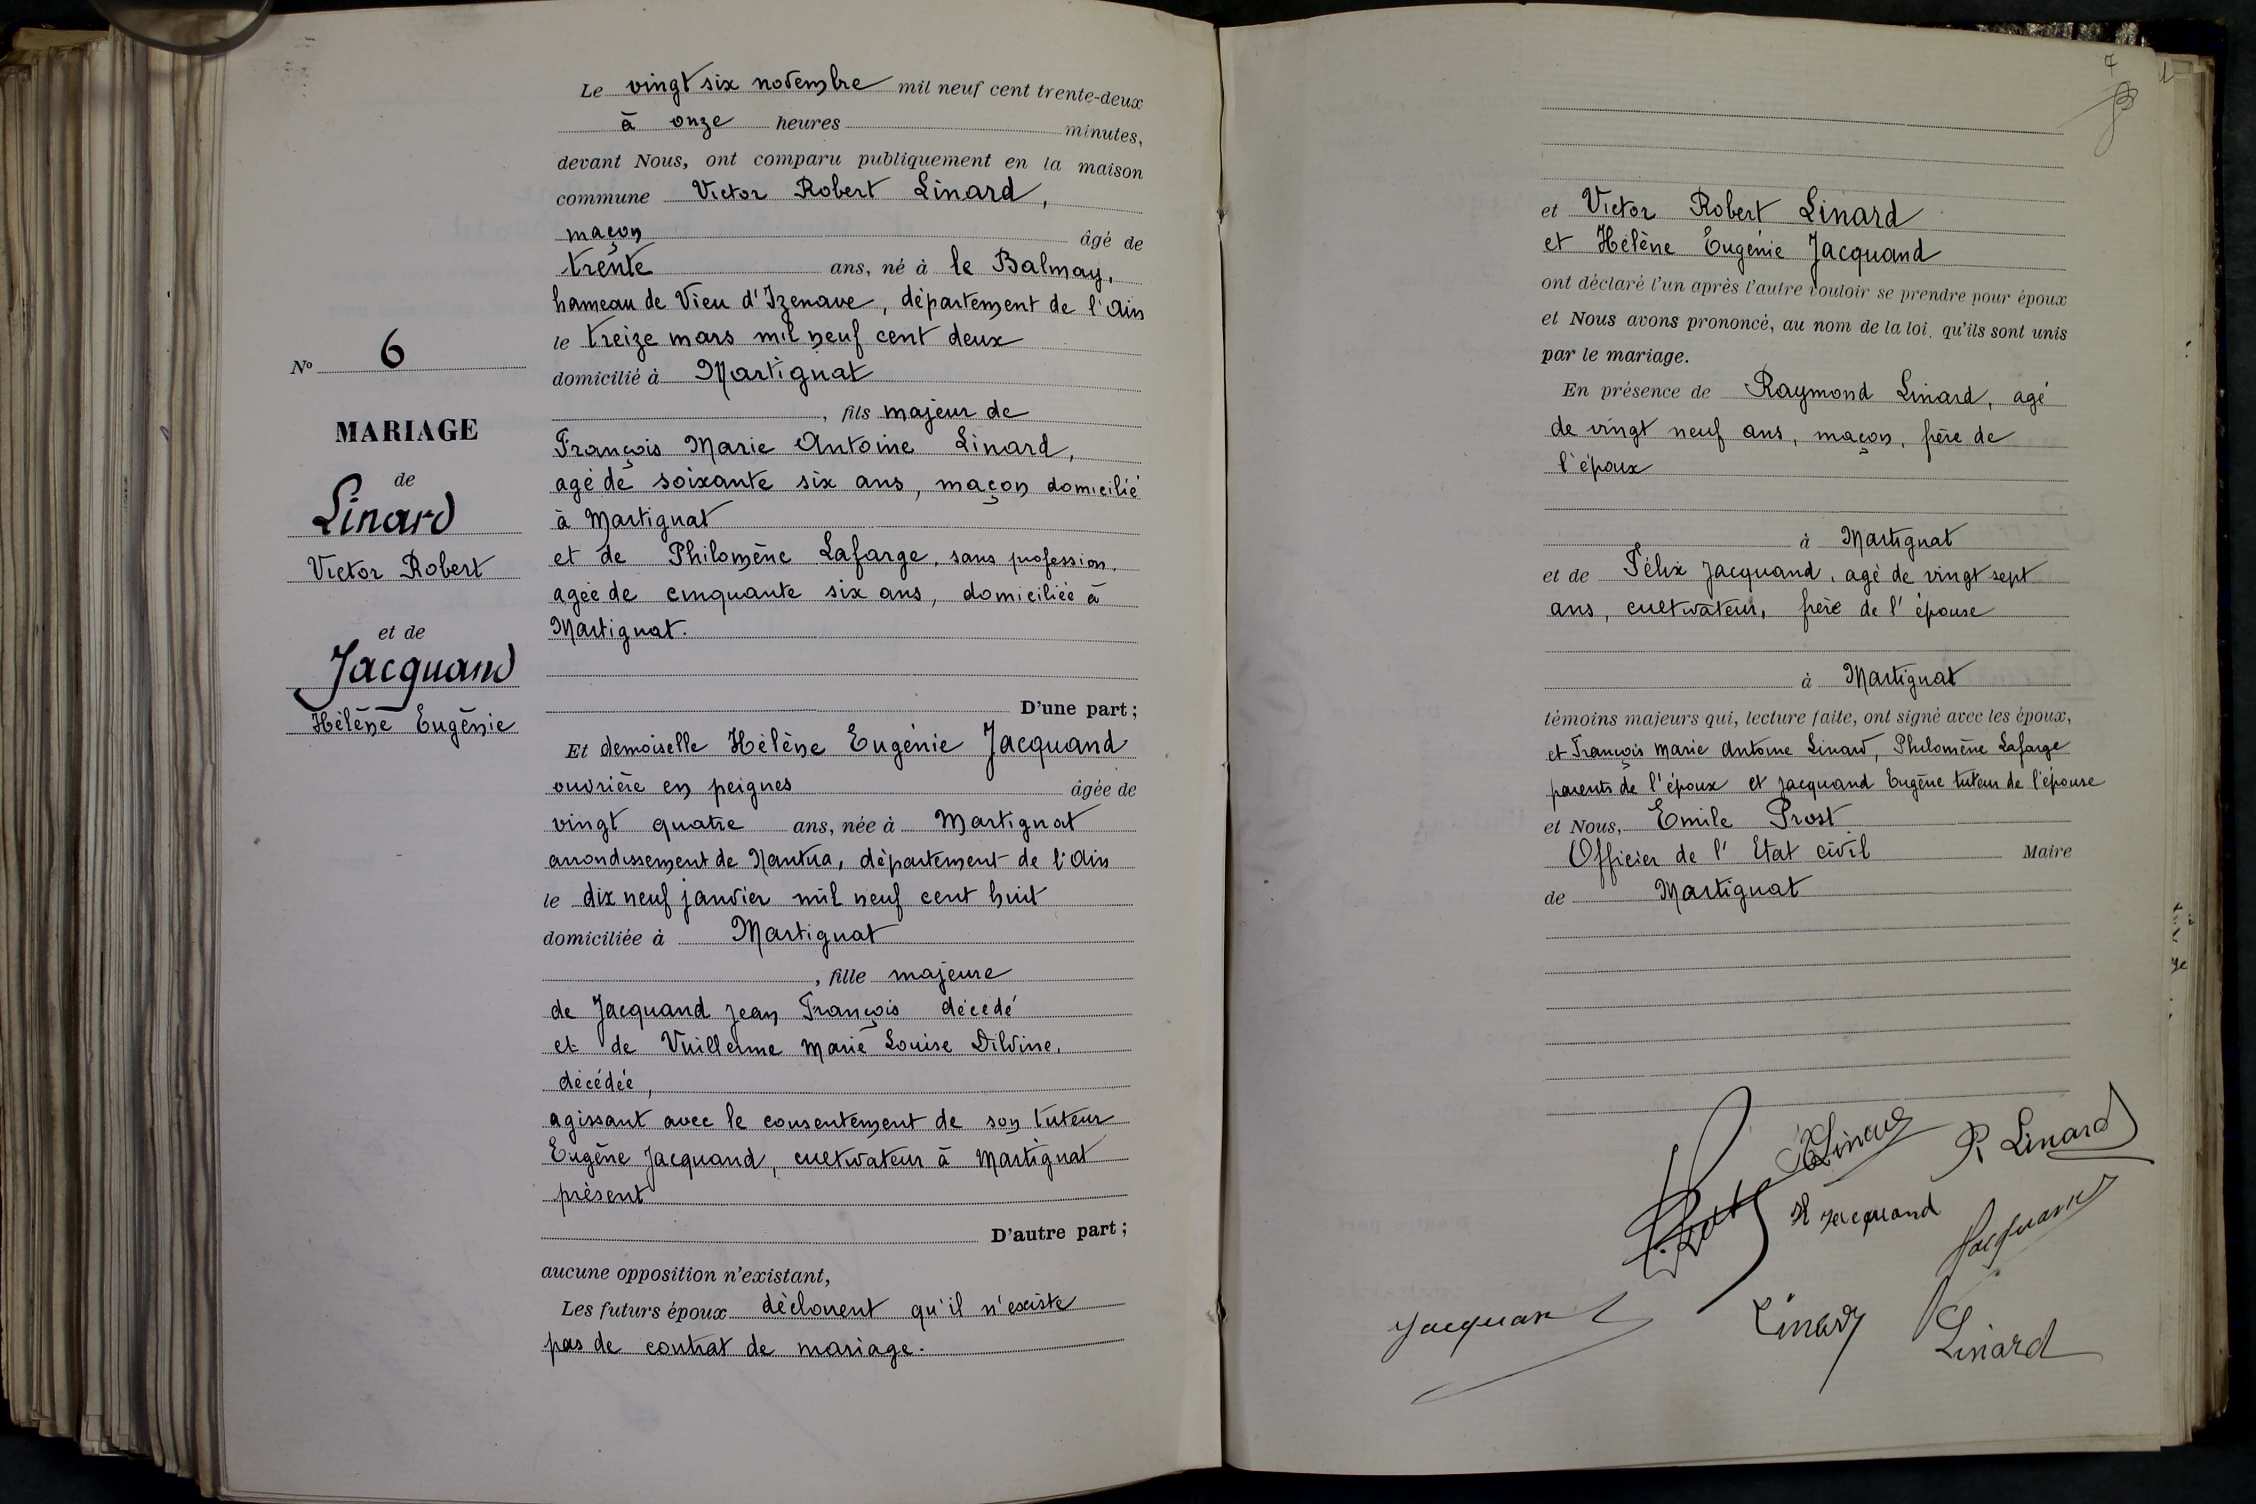 Le vingt six novembre mil neuf cent trente-deux
à onze heures minutes,
devant Nous, ont comparu publiquement en la maison
commune Victor Robert Linard,
maçon âgé de
trente ans, né à le Balmay,
hameau de Vieu d'Izenave, département de l'Ain
le treize mars mil neuf cent deux
domicilié à Martignat
, fils majeur de
François Marie Antoine Linard,
agé de soixante six ans, maçon domicilié
à Martignat
et de Philomène Lafarge, sans profession,
agée de cinquante six ans, domiciliée à
Martignat.
D'une part;
Et demoiselle Hélène Eugénie Jacquand
ouvrière en peignes âgée de
vingt quatre ans, née à Martignat
arrondissement de Nantua, département de l'Ain
le dix neuf janvier mil neuf cent huit
domiciliée à Martignat
, fille majeure
de Jacquand Jean François décédé
et de Vuillerme Marie Louise Dilvine,
décédée,
agissant avec le consentement de son tuteur
Eugène Jacquand, cultivateur à Martignat
présent
D'autre part;
aucune opposition n'existant,
Les futurs époux déclarent qu'il n'existe
pas de contrat de mariage.
No 6
MARIAGE
de
Linard
Victor Robert
et de
Jacquand
Hélène Eugénie
7
et Victor Robert Linard
et Hélène Eugénie Jacquand
ont déclaré l'un après l'autre vouloir se prendre pour époux
et Nous avons prononcé, au nom de la loi, qu'ils sont unis
par le mariage.
En présence de Raymond Linard, agé
de vingt neuf ans, maçon, frère de
l'époux
à Martignat
et de Félix Jacquand, agé de vingt sept
ans, cultivateur, frère de l'épouse
à Martignat
témoins majeurs qui, lecture faite, ont signé avec les époux,
et François Marie Antoine Linard, Philomène Lafarge
parents de l'époux et Jacquand Eugène tuteur de l'épouse
et Nous, Emile Prost
Officier de l'Etat civil Maire
de Martignat
Linard
R Linard
H Jacquand
Jacquand
Jacquand
Linard
Linard